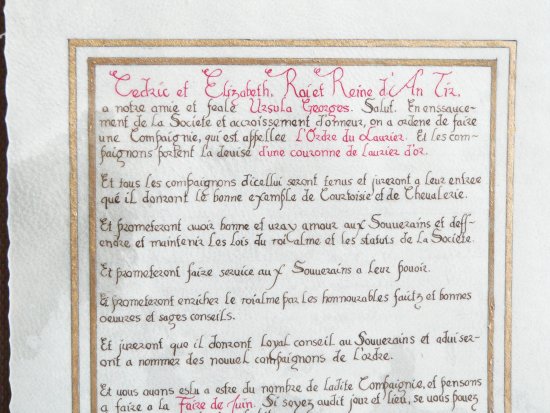 Cedric et Elizabeth, Roi et Reine d'An Tir,
a notre amie et feale Ursula Georges. Salut. En essauce-
ment de la Societe et accroissement d'onneur, on a ordene de faire
une Compaignie, qui est appellee L'Ordre du Laurier. Et les com-
paignons portent la devise d'une couronne de laurier d'or.
Et tous les compaignons d'icellui seront tenus et jureront a leur entree
que il donront le bonne example de Courtoisie et de Chevalerie.
Et prometeront avoir bonne et vray amour aux Souverains et deff-
endre et maintenir les lois du roialme et les statuts de la Societe.
Et prometeront faire service aux Souverains a leur povoir.
Et prometeront enricher le roialme par les honnourables faitz et bonnes
oeuvres et sages conseils.
Et jureront que il donront loyal conseil au Souverains et aduiser-
ont a nommer des nouvel compaignons de l'ordre.
Et vous avons eslu a estre du nombre de ladite Compaignie, et pensons
a faire a la Faire de Juin. Si soyez audit jour et lieu, se vous povez